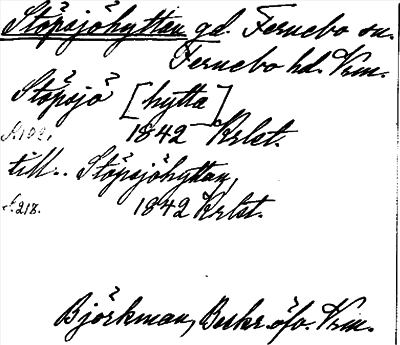 Stöpsjöhyttan gd. Fernebo sn.
Fernebo hd. Vrm.
Stöpsjö [hytta]
S. 102. 1842 Krlst.
till.. Stöpsjöhyttan,
S. 218. 1842 Krlst.
Björkman, Beskr. öfv. Vrm.